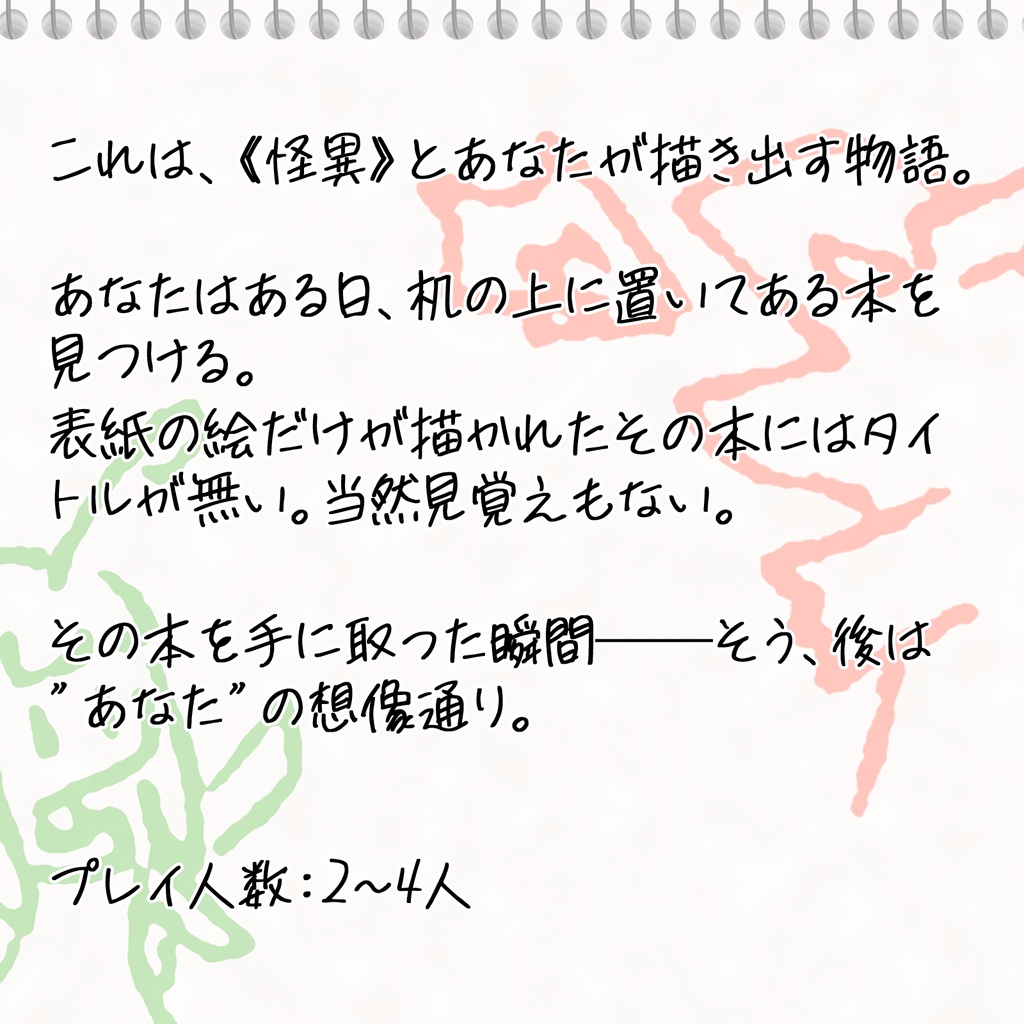 これは、《怪異》とあなたが描き出す物語。
あなたはある日、机の上に置いてある本を
見つける。
表紙の絵だけが描かれたその本にはタイ
トルが無い。当然見覚えもない。
その本を手に取った瞬間――そう、後は
”あなた”の想像通り。
プレイ人数：2～4人